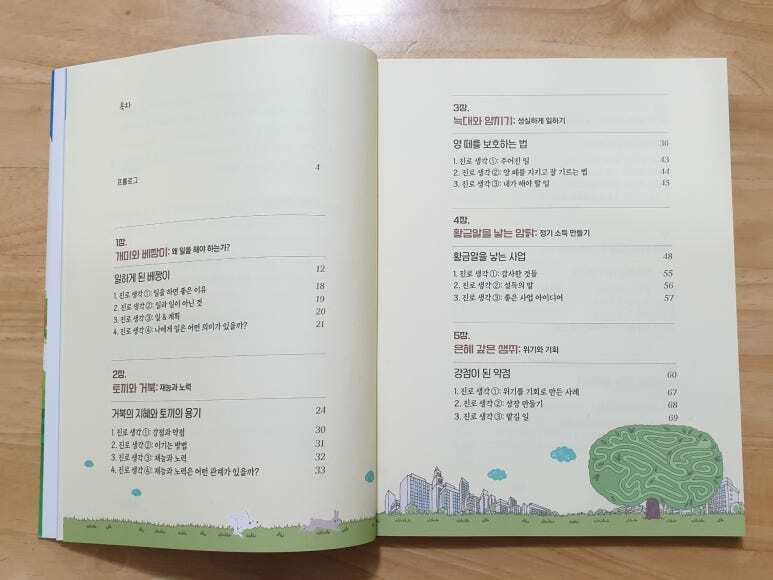 목차
프롤로그 4
1장.
개미와 베짱이: 왜 일을 해야 하는가?
일하게 된 베짱이 12
1. 진로 생각 ①: 일을 하면 좋은 이유 18
2. 진로 생각 ②: 일과 일이 아닌 것 19
3. 진로 생각 ③: 일 & 계획 20
4. 진로 생각 ④: 나에게 일은 어떤 의미가 있을까? 21
2장.
토끼와 거북: 재능과 노력
거북의 지혜와 토끼의 용기 24
1. 진로 생각 ①: 강점과 약점 30
2. 진로 생각 ②: 이기는 방법 31
3. 진로 생각 ③: 재능과 노력 32
4. 진로 생각 ④: 재능과 노력은 어떤 관계가 있을까? 33
3장.
늑대와 양치기: 성실하게 일하기
양 떼를 보호하는 법 36
1. 진로 생각 ①: 주어진 일 43
2. 진로 생각 ②: 양 떼를 지키고 잘 기르는 법 44
3. 진로 생각 ③: 내가 해야 할 일 45
4장.
황금알을 낳는 암탉: 정기 소득 만들기
황금알을 낳는 사업 48
1. 진로 생각 ①: 감사한 것들 55
2. 진로 생각 ②: 설득의 말 56
3. 진로 생각 ③: 좋은 사업 아이디어 57
5장.
은혜 갚은 생쥐: 위기와 기회
강점이 된 약점 60
1. 진로 생각 ①: 위기를 기회로 만든 사례 67
2. 진로 생각 ②: 상장 만들기 68
3. 진로 생각 ③: 맡길 일 69